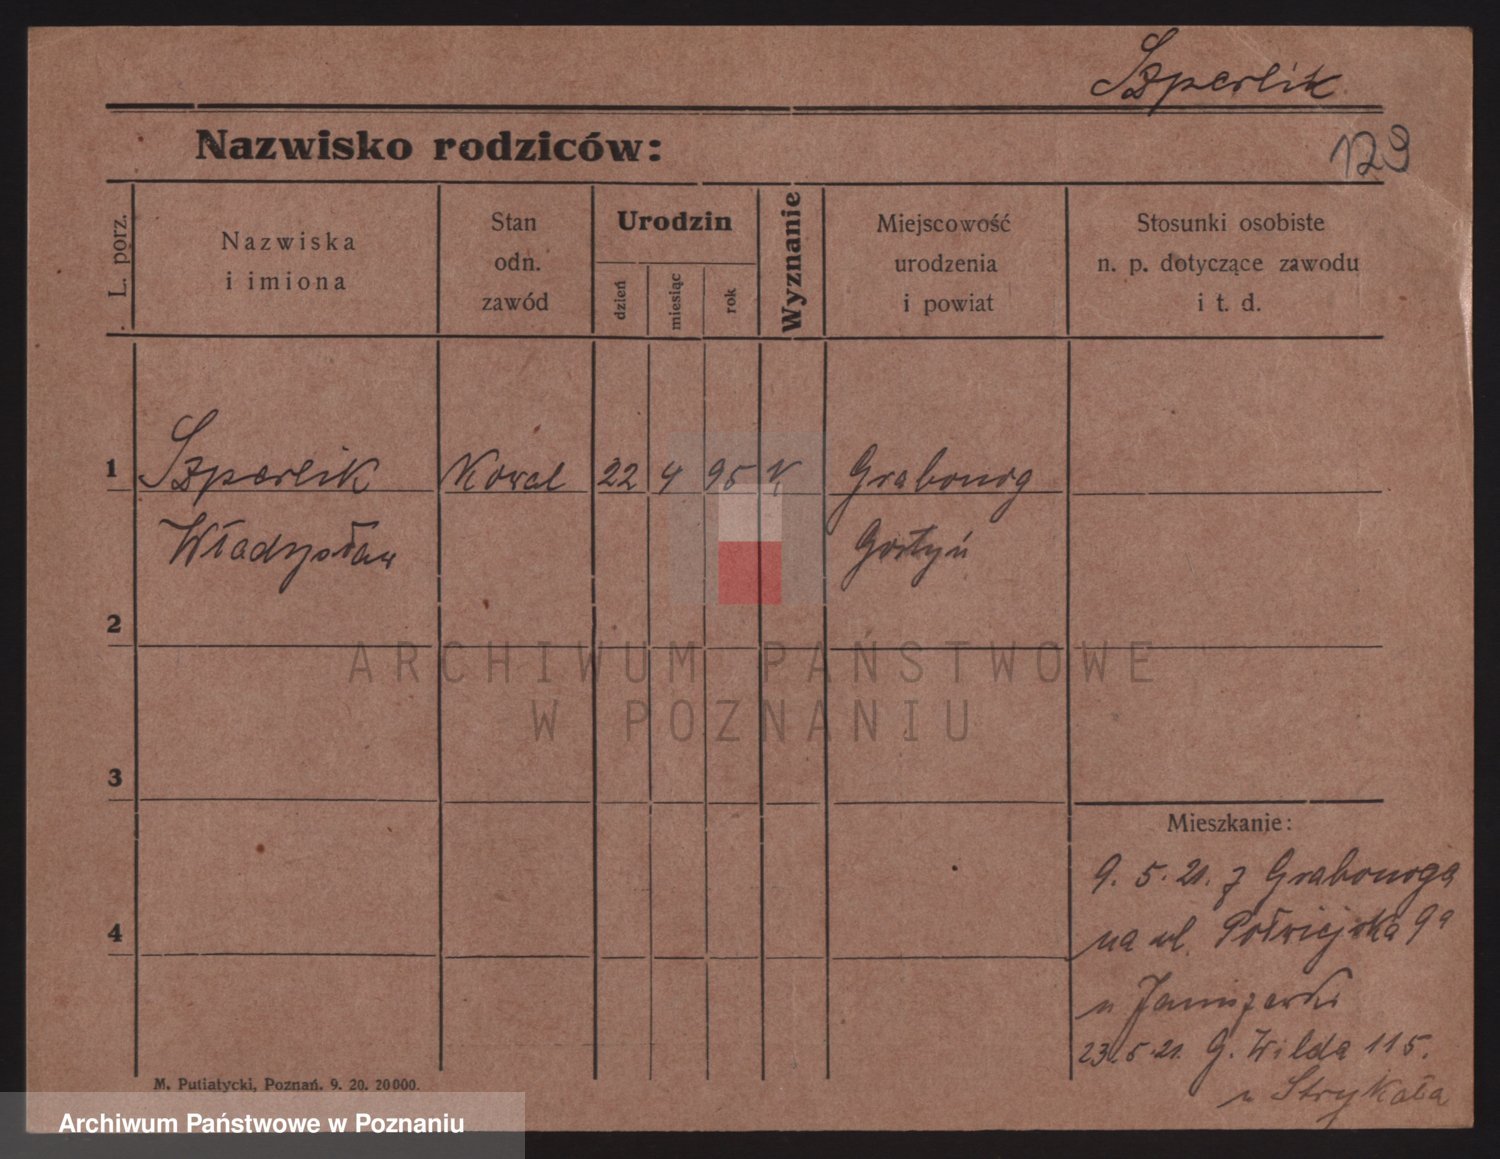 Szperlik
Nazwisko rodziców:
129
L. porz.
Nazwiska
i imiona
Stan
odn.
zawód
Urodzin
dzień
miesiąc
rok
Wyznanie
Miejscowość
urodzenia
i powiat
Stosunki osobiste
n. p. dotyczące zawodu
i t. d.
1 Szperlik Kowal 22 4 95 Grabonog
Władysław Gostyń
2
ARCHIWUM PAŃSTWOWE
W POZNANIU
3
Mieszkanie:
9. 5. 21. z Grabonoga
4
na ul. Półwiejska 9a
u
23.5.21. G. Wilda 115.
M. Putiatycki, Poznań. 9. 20. 20 000.
u Strykała
Archiwum Państwowe w Poznaniu